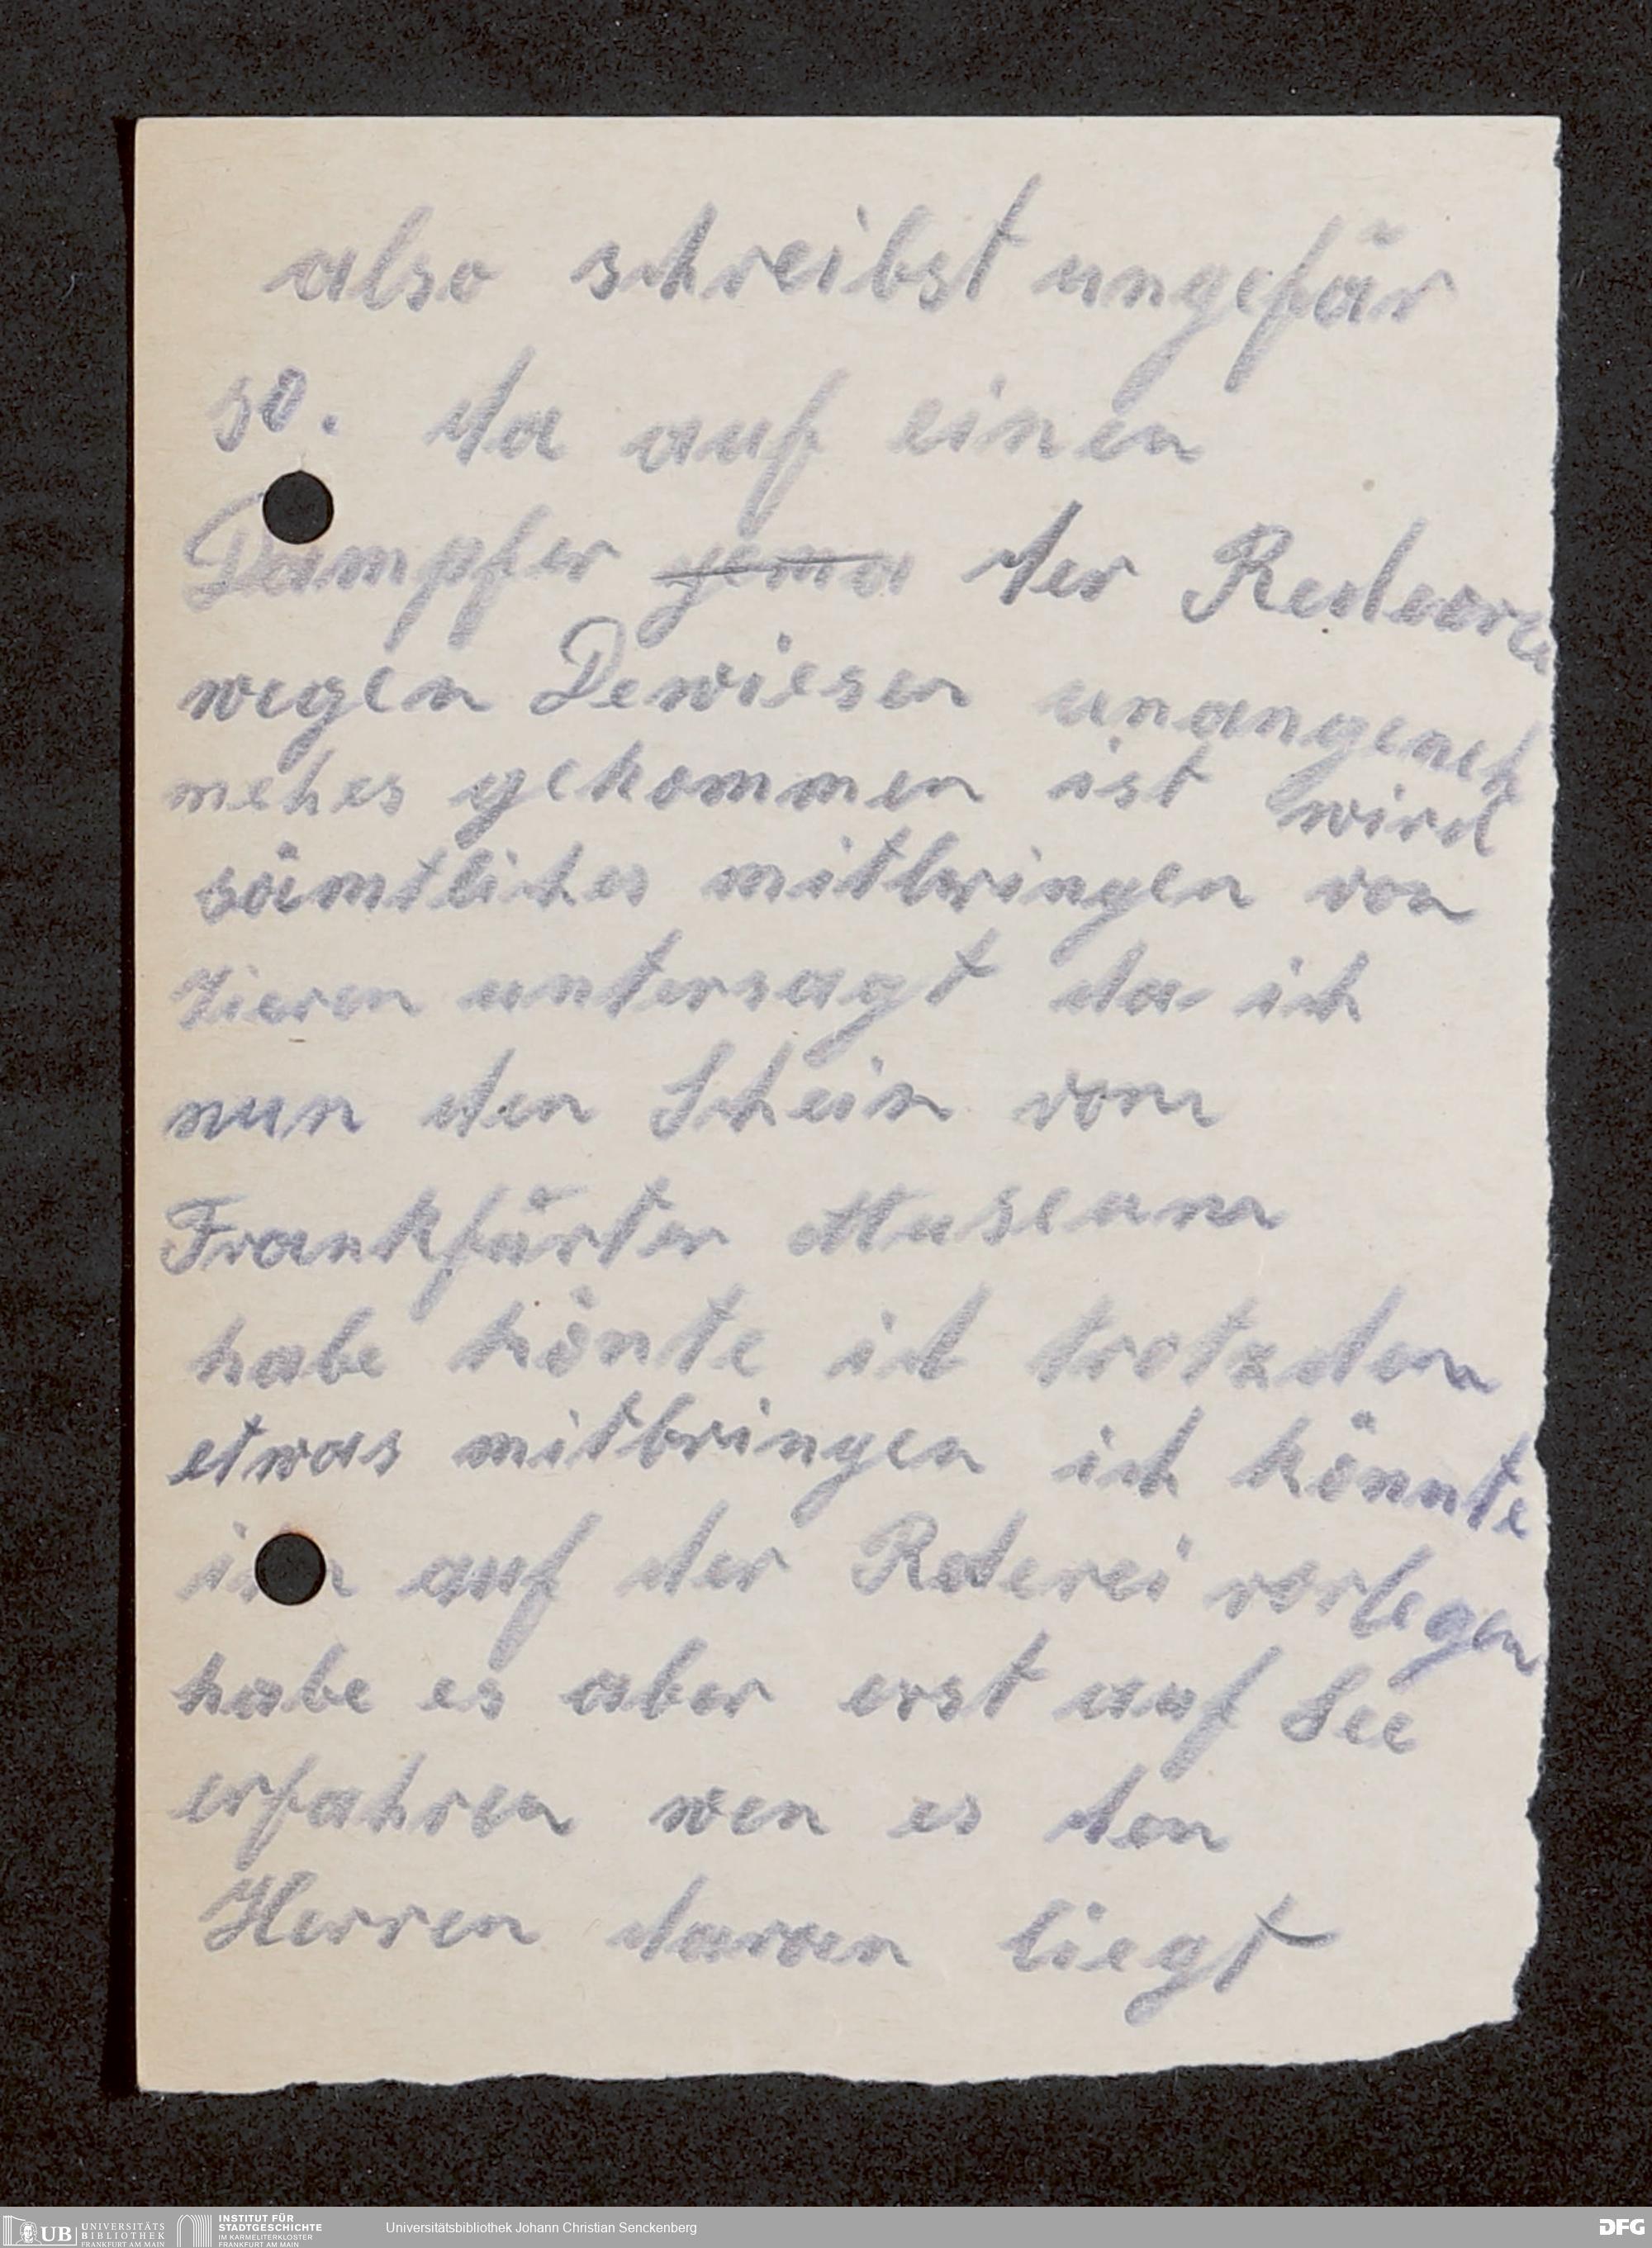 also schreibst ungefär
so. da auf einen
Dampfer jema der
wegen Dewiesen unangeneh
mehes gekommen ist wird
sämtliches mitbringen von
Tieren untersagt da ich
nun den Schein vom
Frankfürter Museum
habe könte ich trotzdem
etwas mitbringen ich könnte
ihn auf der Rederei vorlegen
habe es aber erst auf See
erfahren wen es den
Herren daran liegt
UB UNIVERSITÄTS
BIBLIOTHEK
FRANKFURT AM MAIN
INSTITUT FÜR
STADTGESCHICHTE
IM KARMELITERKLOSTER
FRANKFURT AM MAIN
Universitätsbibliothek Johann Christian Senckenberg
DFG